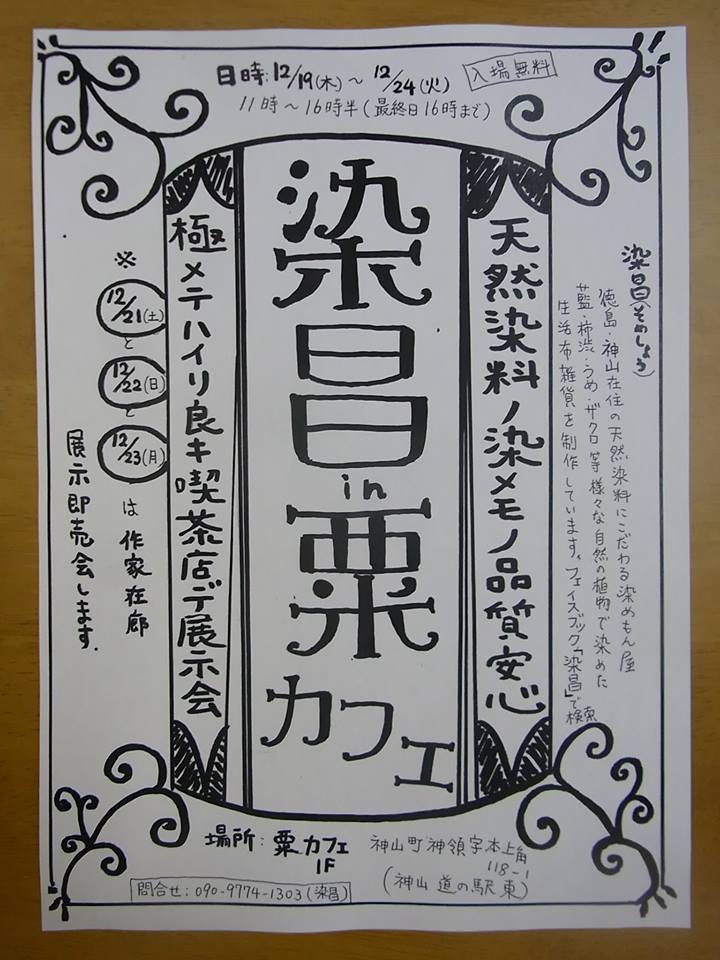 日時:12/19(木)~12/24(火)
入場無料
11時~16時半(最終日16時まで)
染昌(そめしょう)
徳島・神山在住の天然染料にこだわる染めもん屋
藍・柿渋・うめ・ザクロ等様々な自然の植物で染めた
生活布雑貨を制作しています。フェイスブック「染昌」で検索
天然染料ノ染メモノ品質安心
染昌in粟カフェ
極メテハイリ良キ喫茶店デ展示会
※12/21(土)と12/22(日)と12/23(月)は作家在廊
展示即売会します.
場所:粟カフェ1F
神山町神領字本上角118-1
(神山道の駅東)
問合せ:090-9774-1303(染昌)